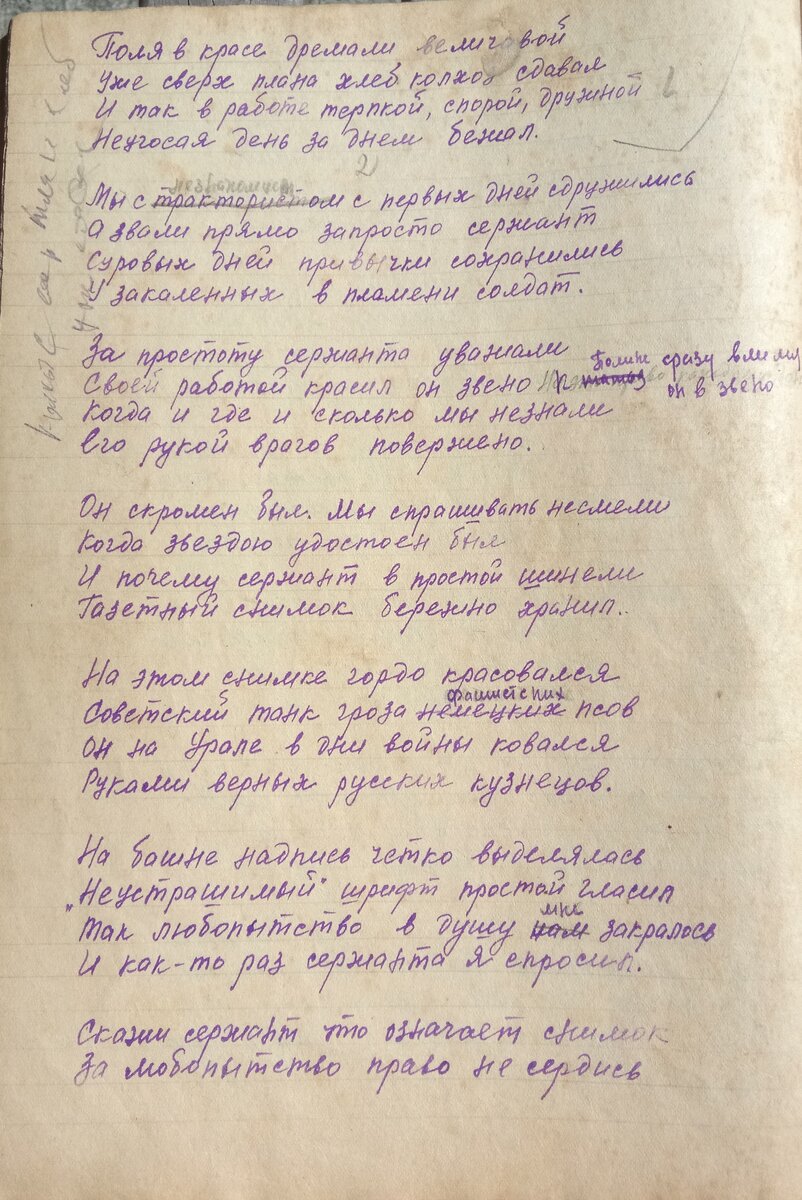 Поля в красе дремали величавой
Уже сверх плана хлеб колхоз сдавал
И так в работе терпкой, спорой, дружной
Неугосая день за днем бежал.
2)
незнакомцем
Мы с трактористом с первых дней сдружились
А звали прямо запросто сержант
Суровых дней привычки сохранились
У закаленных в пламени солдат.
За простоту сержанта уважали
Своей работой красил он звено
Полине сразу влили
он в звено
Когда и где и сколько мы незнали
Его рукой врагов повержено.
Он скромен был. Мы спрашивать несмели
Когда звездою удостоен был
И почему сержант в простой шинели
Газетный снимок бережно хранил.
На этом снимке гордо красовался
фашистских
Советский танк гроза немецких псов
Он на Урале в дни войны ковался
Руками верных русских кузнецов.
На башне надпись четко выделялась
"Неустрашимый" шрифт простой гласил
мне
Так любопытство в душу нам закралось
И как-то раз сержанта я спросил.
Скажи сержант что означает снимок
За любопытство право не сердись